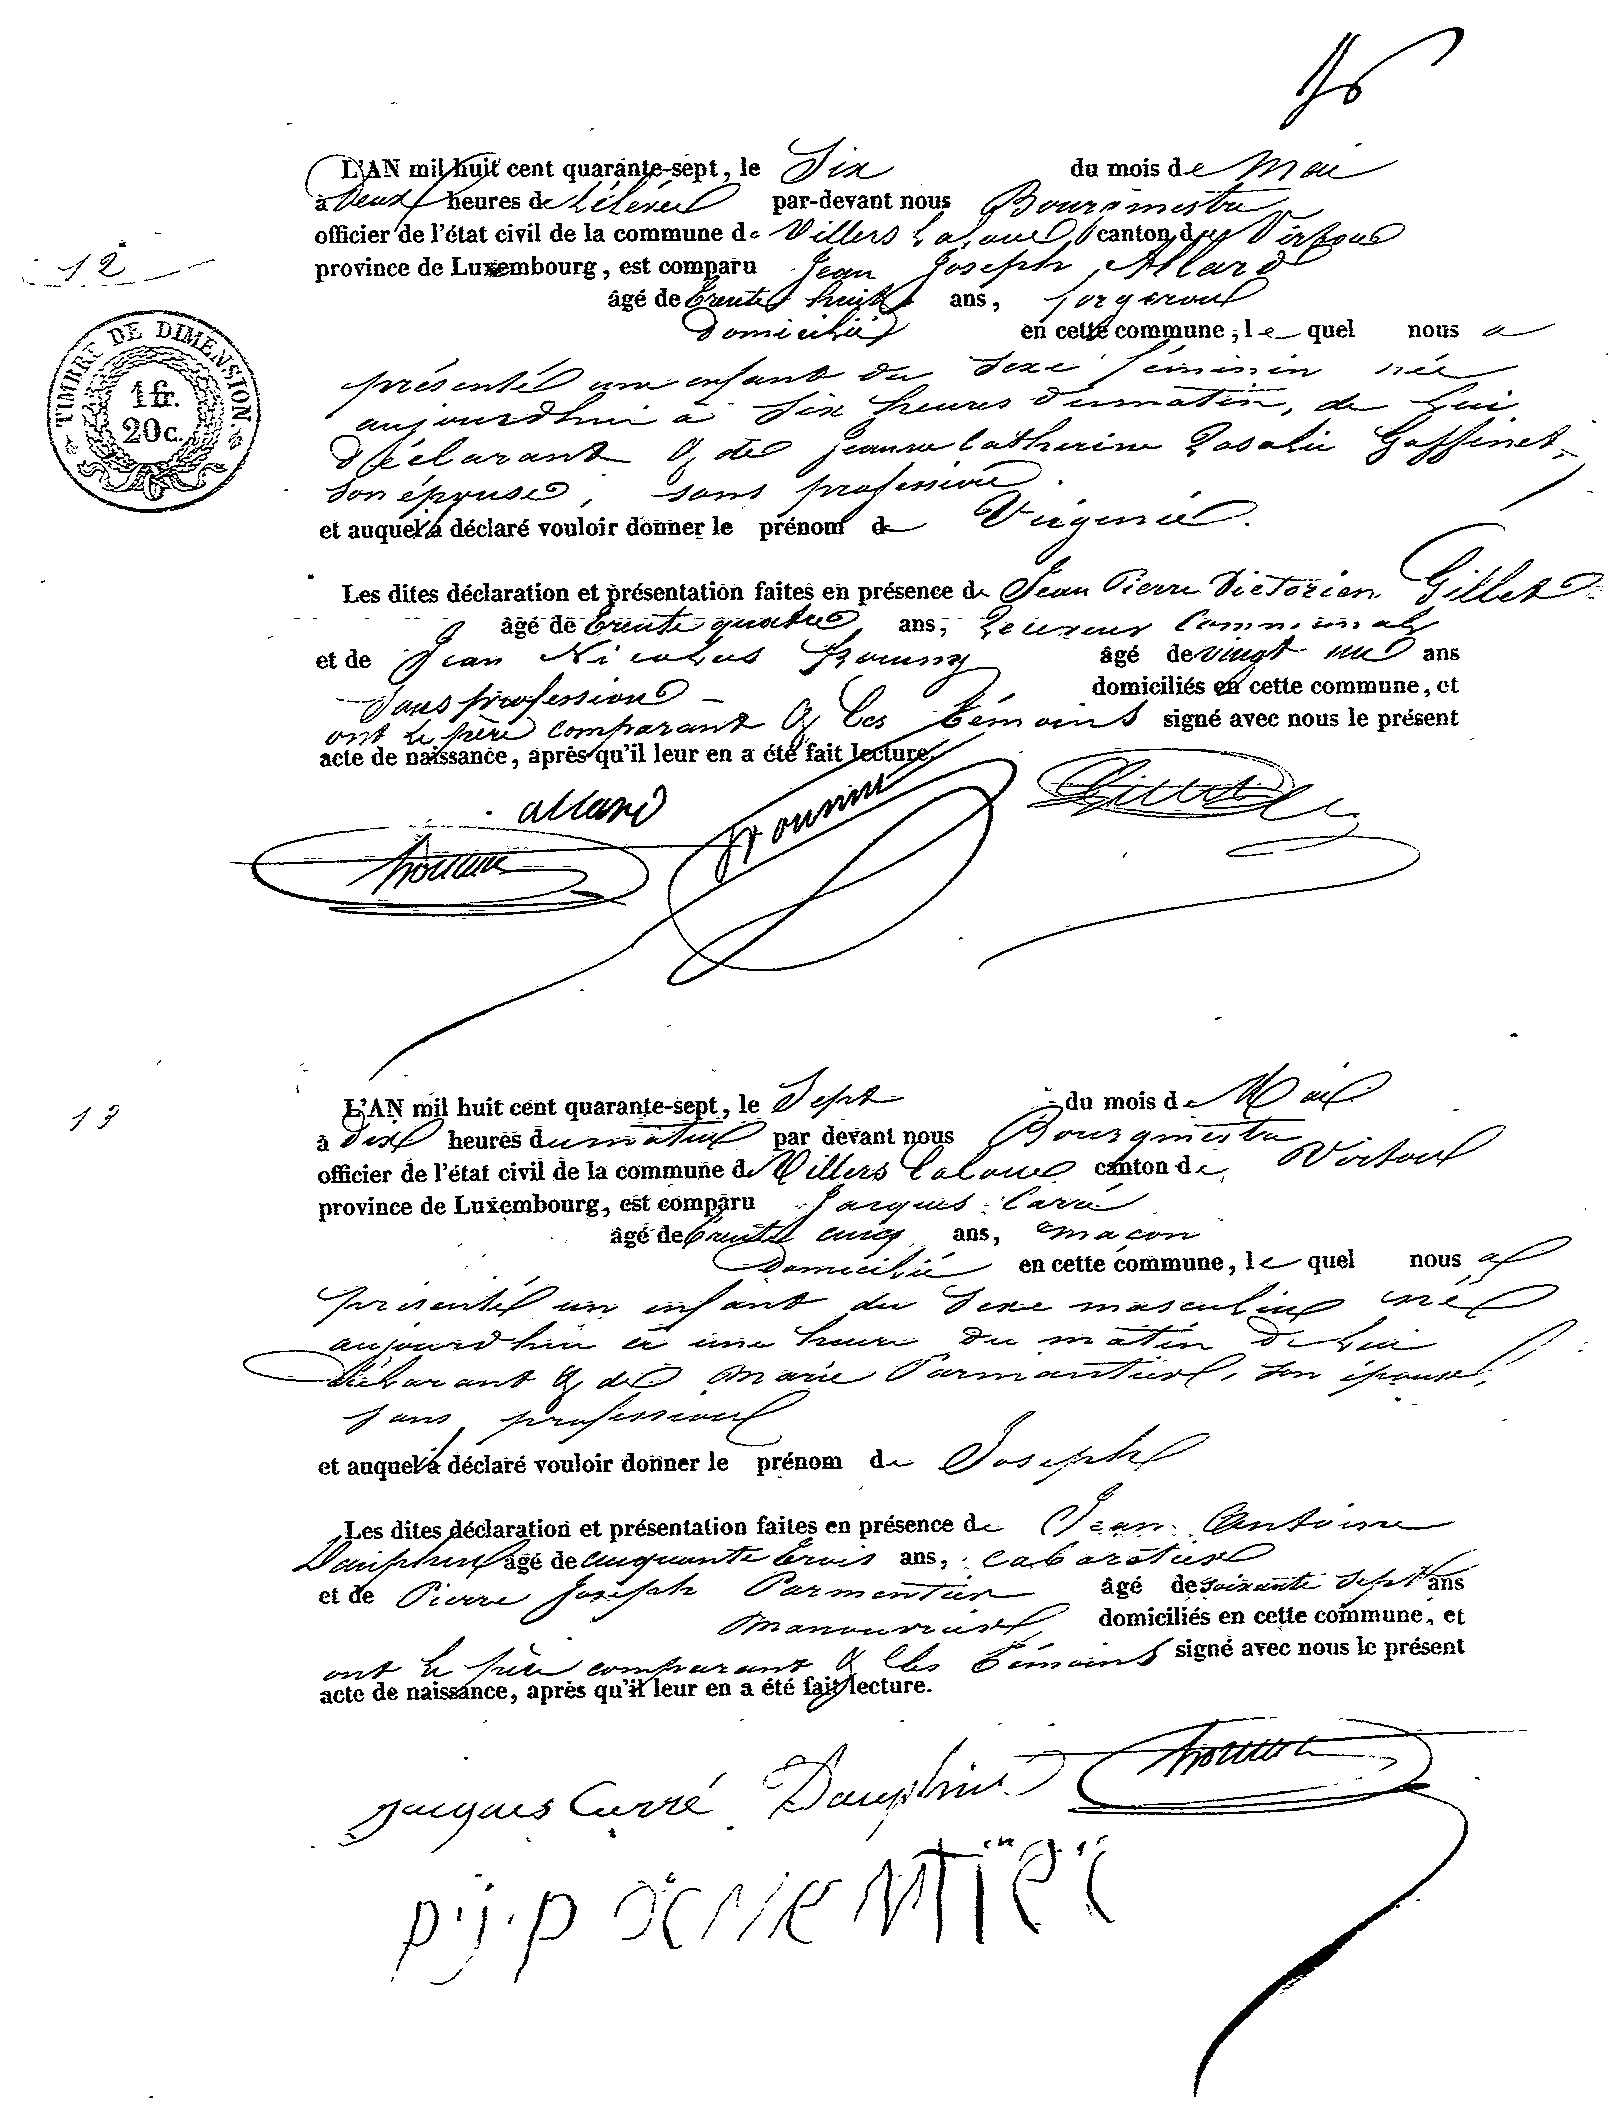 L'AN mil huit cent quarante-sept, le Six du mois de Mai
12
à Deux heures de relevée par-devant nous Bourgmestre
officier de l'état civil de la commune de Villers la loue canton de Virton
province de Luxembourg, est comparu Jean Joseph Allard
âgé de trente huit ans, forgeron
domicilié en cette commune, le quel nous a
TIMBRE DE DIMENSION.
1 fr.
20 c.
présenté un enfant du sexe féminin née
aujourdhui à Six heures du matin, de lui
déclarant & de Jeanne Catherine Rosalie Goffinet,
son épouse, sans profession.
et auquel a déclaré vouloir donner le prénom de Virginie.
Les dites déclaration et présentation faites en présence de Jean Pierre Victorien Gillet
âgé de trente quatre ans, Receveur Communal
et de Jean Nicolas âgé de vingt un ans
Sans profession domiciliés en cette commune, et
ont le père comparant & les témoins signé avec nous le présent
acte de naissance, après qu'il leur en a été fait lecture.
allard
L'AN mil huit cent quarante-sept, le Sept du mois de Mai
13
à dix heures du matin par devant nous Bourgmestre
officier de l'état civil de la commune de Villers la loue canton de Virton
province de Luxembourg, est comparu Jacques Carré
âgé de trente cinq ans, maçon
Domicilié en cette commune, le quel nous a
présenté un enfant du Sexe masculin né
aujourdhui à une heure du matin de lui
Déclarant & de Marie Parmantier, son épouse,
sans profession
et auquel a déclaré vouloir donner le prénom de Joseph
Les dites déclaration et présentation faites en présence de Jean Antoine
Dauphin âgé de cinquante trois ans, cabaretier
et de Pierre Joseph Parmentier âgé de soixante Sept ans
manouvrier domiciliés en cette commune, et
ont le père comparant & les témoins signé avec nous le présent
acte de naissance, après qu'il leur en a été fait lecture.
jacques Carré Dauphin